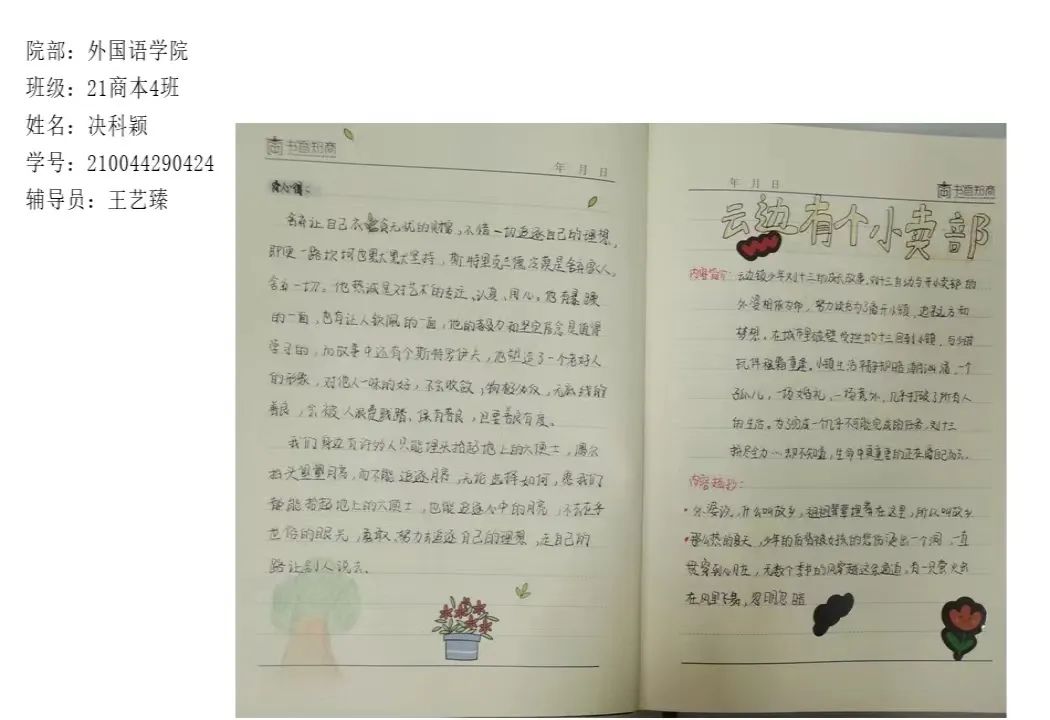 院部：外国语学院
班级：21商本4班
姓名：决科颖
学号：210044290424
辅导员：王艺臻
书香知商
年 月 日
舍弃让自己衣食无忧的财富，不惜一切追逐自己的理想，
即便一路坎坷也要大坚持，斯特里克兰德
舍弃一切。他热诚是对艺术的专注、认真、用心。他有
的一面，也有让人钦佩的一面，他的毅力和坚定信念是值得
学习的，而故事中还有个斯特罗伊夫，他塑造了一个老好人
的形象，对他人一味的好，不会收敛，物极必反，无底线的
善良，会被人浪费践踏、保有善良，但要善良有度。
我们身边有许多人只能埋头拾起地上的六便士，偶尔
抬头望望月亮，而不能追逐月亮，无论选择如何，愿我们
都能拾起地上的六便士，也能追逐心中的月亮，不在乎
世俗的眼光，勇敢、努力去追逐自己的理想，走自己的
路让别人说去。
年 月 日
书香知商
云边有个小卖部
内容简介：云边镇少年刘十三的成长故事。刘十三自幼与开小卖部的
外婆相依为命，努力读书为了离开小镇，追寻远方和
梦想。在城市里碰壁受挫的十三回到小镇，与少时
玩伴程霜重逢。小镇生活平静却暗潮汹涌，一个
孤儿，一场婚礼，一场意外，几乎打破了所有人
的生活。为了完成一个几乎不可能完成的任务，刘十三
拼尽全力……却不知道，生命中更重要的正在离自己而去。
内容摘抄：
·外婆说，什么叫故乡，祖祖辈辈埋葬在这里，所以叫故乡
·那么热的夏天，少年的后背被女孩的悲伤烫出一个洞，一直
贯穿到心脏，无数个季节的风穿越这条通道，有一只萤火虫
在风里飞舞，忽明忽暗